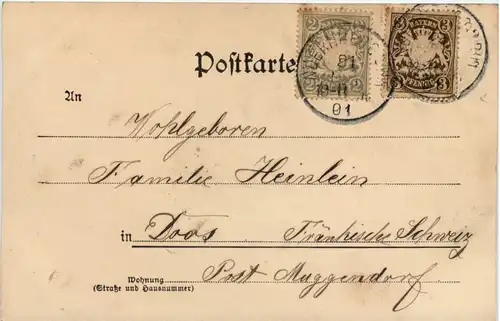 Postkarte
2 BAYERN 2
3 BAYERN 3
PFENNIG
01
An
Wohlgeboren
Familie Heinlein
in Doos Fränkische Schweiz
Wohnung
(Straße und Hausnummer)
Post Muggendorf